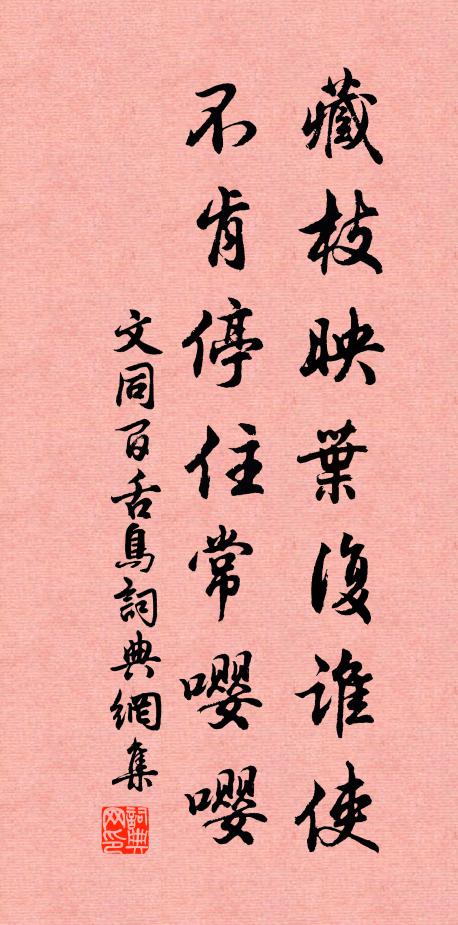 藏枝映葉復誰使
不肯停住常嚶嚶
文同百舌鳥詞典網集
詞典网印